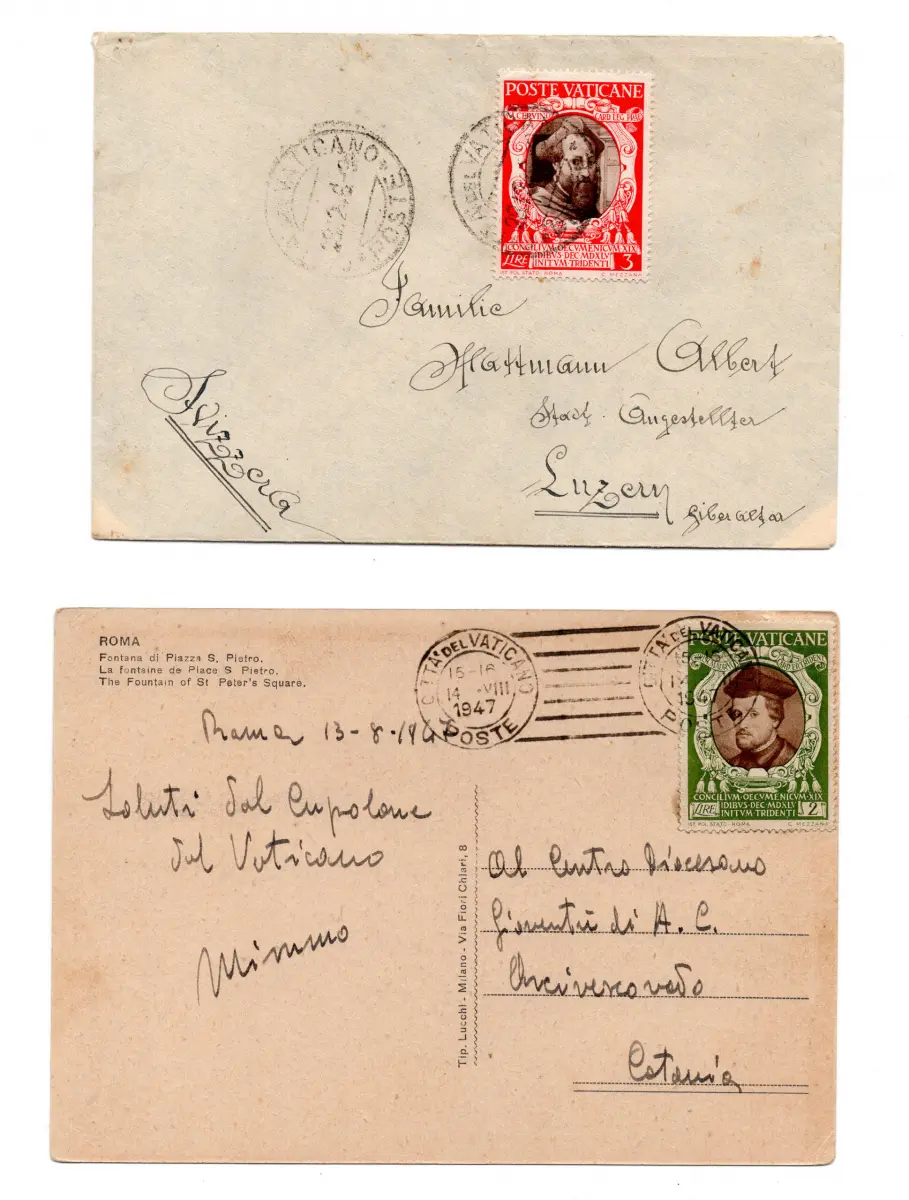 POSTE VATICANE
M. CERVINO CARD. LEG.
CONCILIVM·OECVMENICVM·XIX
IDIBVS·DEC·MDXLV
LIRE INITVM·TRIDENTI 3
IST. POL. STATO. ROMA C. MEZZANA
VATICANO POSTE
DEL VATICANO
Familie
Mattmann Albert
Stadt. Angestellter
Luzern
Gibraltar
Svizzera
ROMA
Fontana di Piazza S. Pietro.
La fontaine de Place S. Pietro.
The Fountain of St Peter's Square.
CITTA' DEL VATICANO
15-16
14 ·VIII
1947
POSTE
CITTA' DEL VATICANO
15-16
1947
POSTE
POSTE VATICANE
CONCILIVM·OECVMENICVM·XIX
IDIBVS·DEC·MDXLV
LIRE INITVM·TRIDENTI 2
IST. POL. STATO. ROMA C. MEZZANA
Roma 13-8-1947
Saluti dal Cupolone
dal Vaticano
Mimmo
Tip. Lucchi - Milano - Via Fiori Chiari, 8
Al Centro Diocesano
Gioventù di A. C.
Arcivescovado
Catania